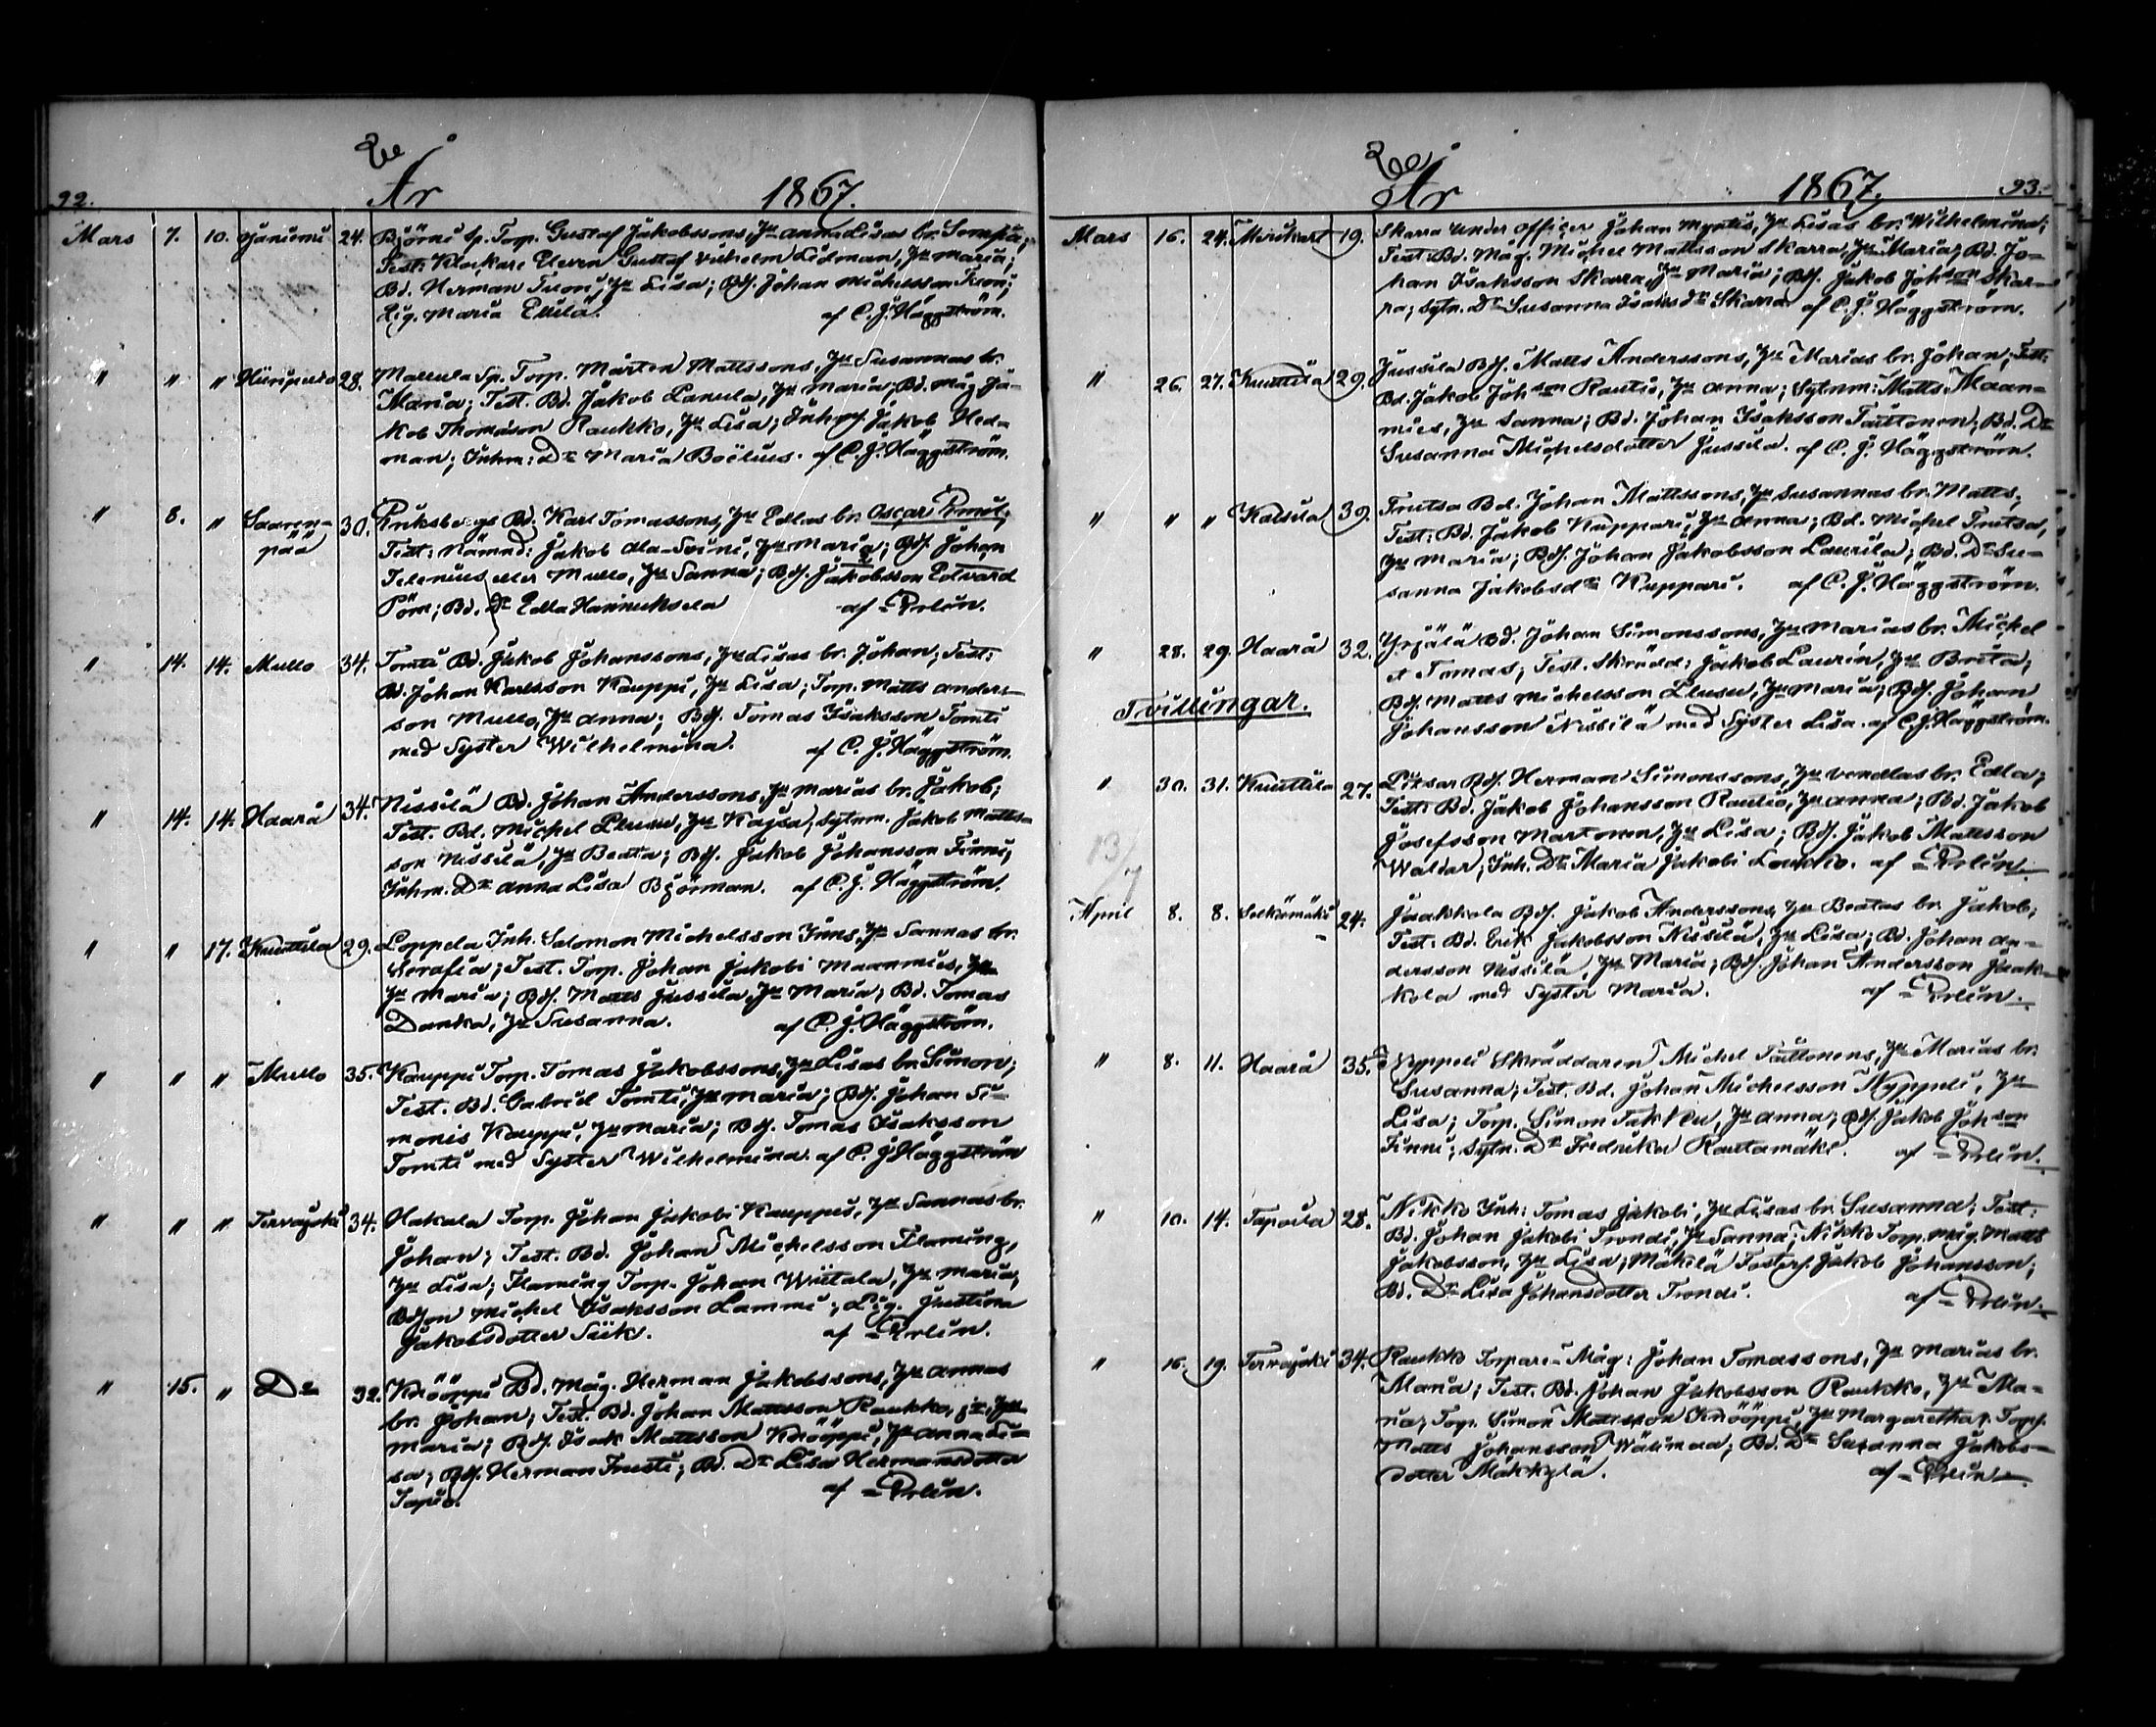 92. År 1867.
Mars 7. 10. Jäniemi 24. Björni Sp. Torp. Gustaf Jakobssons, Hu Anna Lisas br. Sempia;
Test: Klockare Eleven Gustaf Wilhelm Lidman, Hu Maria;
Bd. Herman Trconu, Hu Lisa; Bds. Johan Michelsson Tron;
Pig. Maria Ellilä. af C. J. Häggström.
" " " Hiiripelto 28. Mallula Sp. Torp. Mårten Mattssons, Hu Susannas br.
Maria; Test. Bd. Jakob Panula, Hu Maria; Bd. Måg Ja-
kob Thomason Raukko, Hu Lisa; Inhys. Jakob Hed-
man; Inhm: Dr Maria Boëlius. af C. J. Häggström.
" 8. " Saaren-
pää 30. Riksbergs Bd. Karl Tomassons, Hu Edlas br. Oscar Emil;
Test: Nämnd: Jakob Ala-Seini, Hu Maria; Bds. Johan
Telenius eller Mullo, Hu Sanna; Bds. Jakobsson Edvard
Pöm; Bd. Dr Edla Hannuksela af Polén.
" 14. 14. Mullo 34. Tomti Bd. Jakob Johanssons, Hu Lisas br. Johan; Test:
Bd. Johan Karlsson Kauppi, Hu Lisa; Torp. Matts Anders-
son Mullo, Hu Anna; Bds. Tomas Isaksson Tomti
med Syster Wilhelmina. af C. J. Häggström.
" 14. 14. Haara 34. Nissilä Bd. Johan Anderssons, Hu Marias br. Jakob;
Test. Bd. Michel Plusu, Hu Kajsa; Sytnm. Jakob Matts-
son Nissilä, Hu Beata; Bds. Jakob Johansson Finni;
Inhm. Dr Anna Lisa Björman. af C. J. Häggström.
" " 17. Knuttila 29. Loppela Inh. Salomon Michelsson Inns, Hu Sannas br.
Serafia; Test. Torp. Johan Jakobi Maanmies, Hu
Hu Maria; Bds. Matts Jussila, Hu Maria; Bd. Tomas
Danka, Hu Susanna. af C. J. Häggström.
" " " Mullo 35. Kauppi Torp. Tomas Jakobssons, Hu Lisas br. Simon;
Test. Bd. Gabriel Tomti, Hu Maria; Bds. Johan Si-
monis Kauppi, Hu Maria; Bds. Tomas Isaksson
Tomti med Syster Wilhelmina. af C. J. Häggström
" " " Tervajoki 34. Hakala Torp. Johan Jakobi Kauppis, Hu Sannas br.
Johan; Test. Bd. Johan Michelsson Flaming,
Hu Lisa; Flaming Torp. Johan Wiitala, Hu Maria;
Bdson Michel Isaksson Lammi; Pig. Justina
Jakobsdotter Siik. af Polén.
" 15. " Do 32. Knööppi Bd. Måg. Herman Jakobssons, Hu Annas
br. Johan; Test. Bd. Johan Mattsson Raukko, jr, Hu
Maria; Bds. Isak Mattsson Knööppi, Hu Anna Li-
sa; Bds. Herman Trusti; Bd. Dr Lisa Hermansdotter
Tapio. af Polén.
År 1867. 93.
Mars 16. 24. Merikart 19. Skarra Under Officer Johan Myntis, Hu Lisas br. Wilhelmina;
Test: Bd. Måg. Michel Mattsson Skarra, Hu Maria; Bd. Jo-
han Isaksson Skarra, Hu Maria; Bds. Jakob Johsson Skar-
ra; Sytn. Dr Susanna Isaksdr Skarra. af C. J. Häggström.
" 26. 27. Knuttila 29. Jussila Bds. Matts Anderssons, Hu Marias br. Johan; Test:
Bd. Jakob Johsson Rautio, Hu Anna; Sytnm: Matts Maan-
mies, Hu Sanna; Bd. Johan Isaksson Taittonen; Bd. Dr
Susanna Michelsdotter Jussila. af C. J. Häggström.
" " " Kalsila 39. Trutsa Bd. Johan Mattssons, Hu Susannas br. Matts;
Test: Bd. Jakob Kuppari, Hu Anna; Bd. Michel Trutsa,
Hu Maria; Bds. Johan Jakobsson Laurila; Bd. Dr Su-
sanna Jakobsdr Kuppari. af C. J. Häggström.
" 28. 29. Haara 32. Yrjälä Bd. Johan Simonssons, Hu Marias br. Mickel
et Tomas; Test. Skrädd: Jakob Laurin, Hu Brita;
Tvillingar. Bds. Matts Michelsson Plusu, Hu Maria; Bds. Johan
Johansson Nissilä med Syster Lisa. af C. J. Häggström.
" 30. 31. Knuttila 27. Bds. Herman Simonssons, Hu Vendlas br. Edla;
Test: Bd. Jakob Johansson Rautio, Hu Anna; Bd. Jakob
Josefsson Martonen, Hu Lisa; Bds. Jakob Mattsson
Waldar; Inh. Dr Maria Jakobi Loukko. af Polén.
13/7
April 8. 8. Selkämäki 24. Jaakkola Bds. Jakob Anderssons, Hu Beatas br. Jakob;
Test: Bd. Erik Jakobsson Nissilä, Hu Lisa; Bd. Johan An-
dersson Nissilä, Hu Maria; Bds. Johan Andersson Jaak-
kola med Syster Maria. af Polén.
" 8. 11. Haara 35. Nyppeli Skräddaren Michel Taittonens, Hu Marias br.
Susanna; Test. Bd. Johan Michelsson Nyppeli, Hu
Lisa; Torp. Simon Takku, Hu Anna; Bds. Jakob Johsson
Finni; Sytn. Dr Fredrika Rautamäki. af Polén.
" 10. 14. Tapoila 28. Nikko Inh: Tomas Jakobi, Hu Lisas br. Susanna; Test:
Bd. Johan Jakobi Trondi, Hu Sanna; Nikko Torp. Måg. Matts
Jakobsson, Hu Lisa; Mäkelä Fosters. Jakob Johansson;
Bd. Dr Lisa Johansdotter Trondi. af Polén.
" 16. 19. Tervajoki 34. Raukko Torpare-Måg: Johan Tomassons, Hu Marias br.
Maria; Test. Bd. Johan Jakobsson Raukko, Hu Ma-
ria; Torp. Simon Mattsson Knööppi, Hu Margaretha; Torps.
Matts Johansson Wälimaa; Bd. Dr Susanna Jakobs-
dotter Mäkkylä. af Polén.